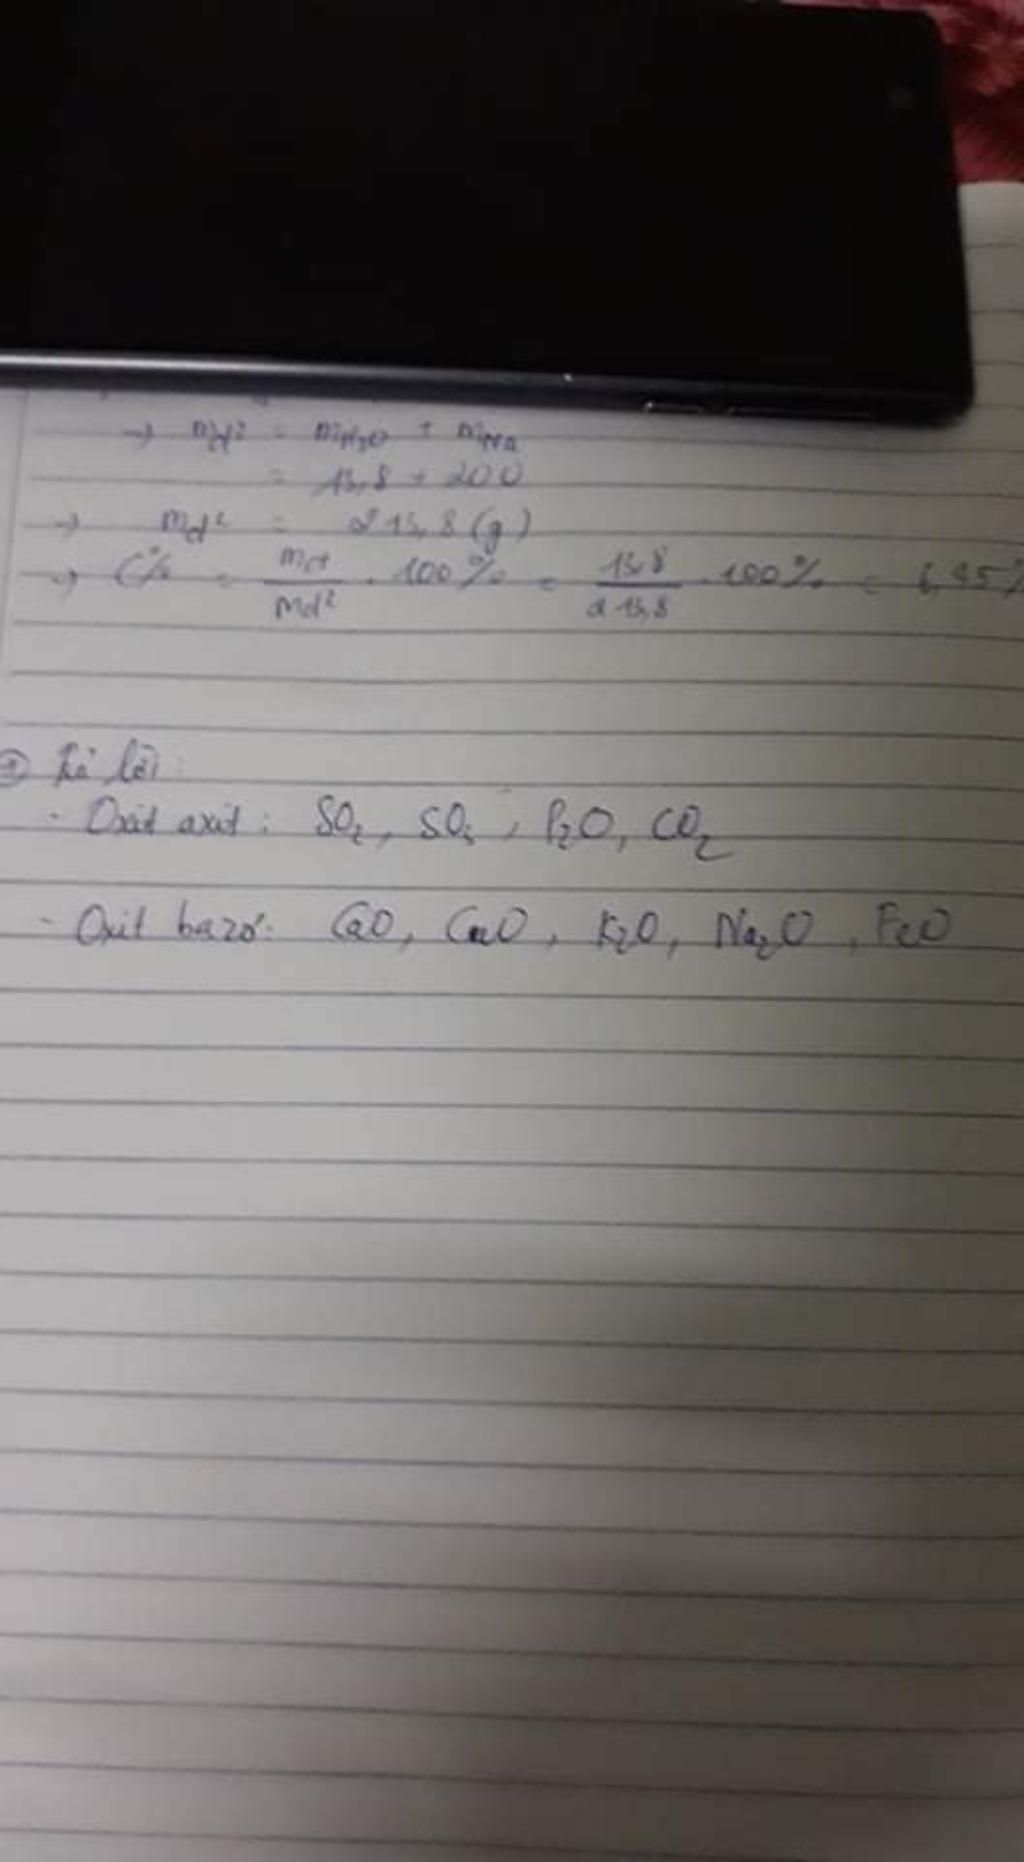 → mdd = mH₂O + mNa
= 13,8 + 200
→ mdd = 213,8 (g)
→ C% = mct / mdd . 100% = 13,8 / 213,8 . 100% = 6,45%
Trả lời:
- Oxit axit: SO₂, SO₃, P₂O, CO₂
- Oxit bazơ: CaO, CuO, K₂O, Na₂O, FeO